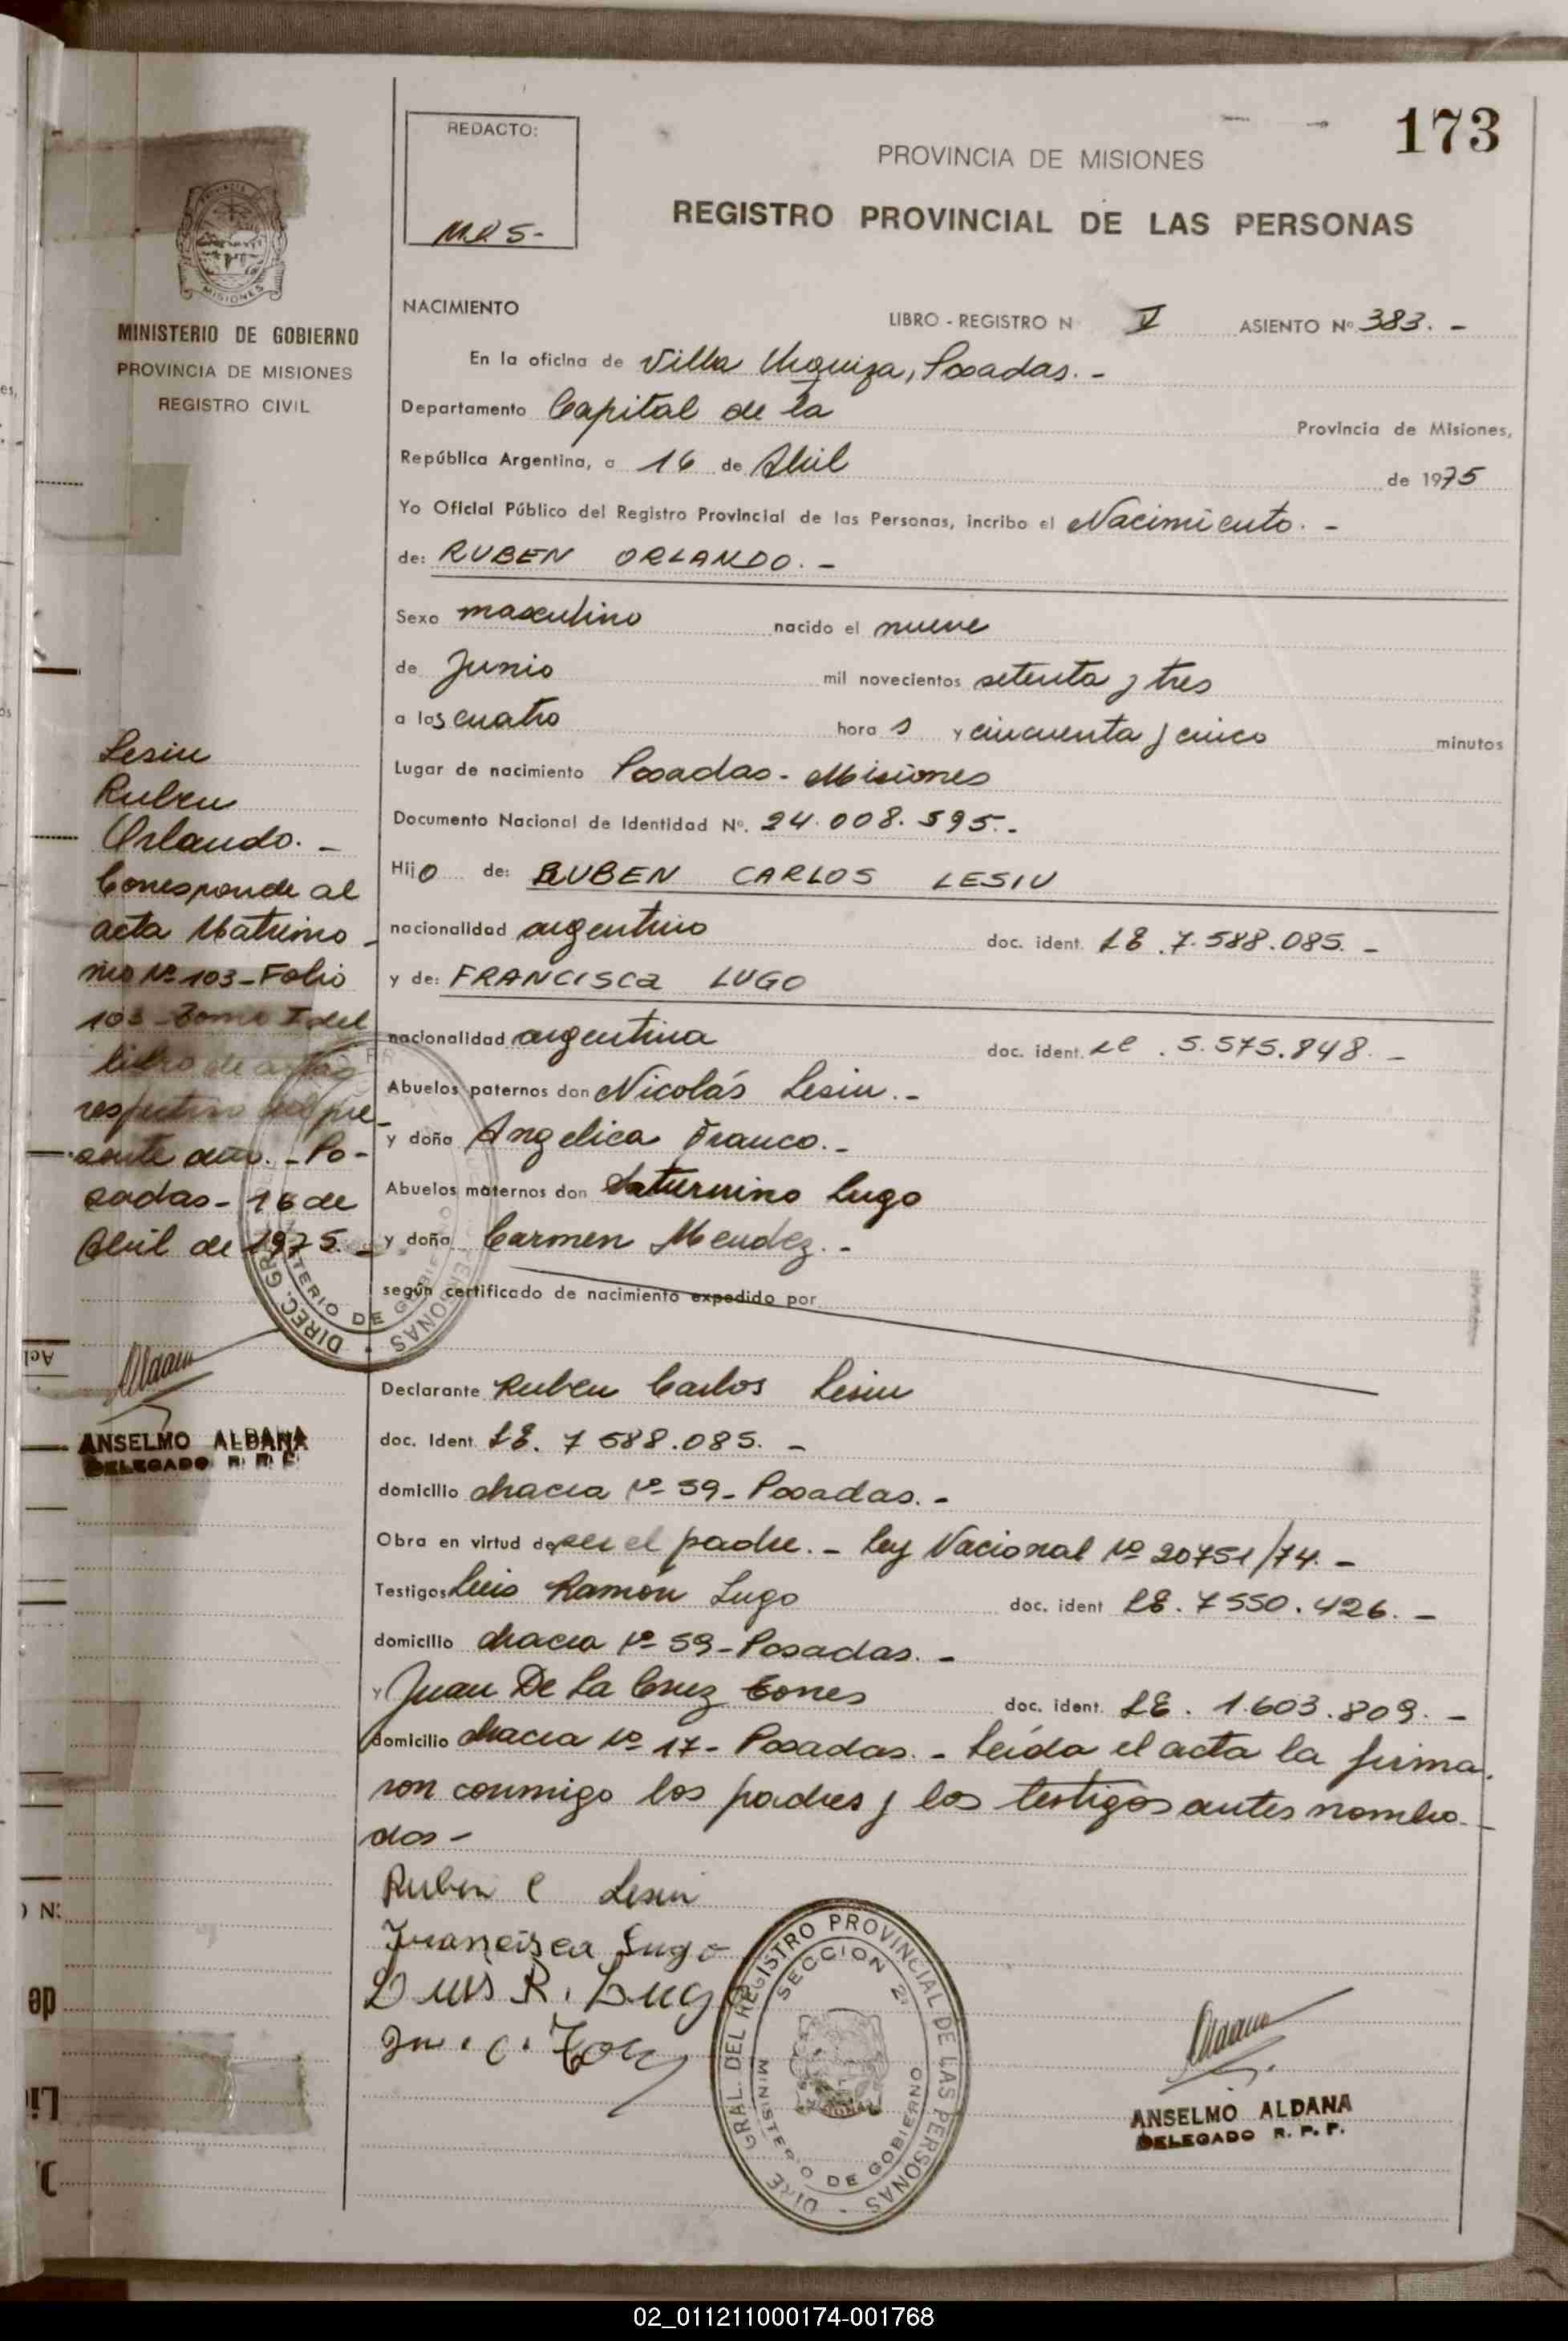 173
REDACTO:
PROVINCIA DE MISIONES
REGISTRO PROVINCIAL DE LAS PERSONAS
MISIONES
MINISTERIO DE GOBIERNO
PROVINCIA DE MISIONES
REGISTRO CIVIL
NACIMIENTO
LIBRO - REGISTRO N V ASIENTO Nº 383. -
En la oficina de Villa Urquiza, Posadas. -
Departamento Capital de la Provincia de Misiones,
República Argentina, a 16 de Abril de 1975
Yo Oficial Público del Registro Provincial de las Personas, incribo el Nacimiento. -
de: RUBEN ORLANDO. -
Sexo masculino nacido el nueve
de Junio mil novecientos setenta y tres
a las cuatro hora s y cincuenta y cinco minutos
Lugar de nacimiento Posadas - Misiones
Documento Nacional de Identidad Nº. 24.008.595. -
Hijo de: RUBEN CARLOS LESIU
nacionalidad argentino doc. ident. LE. 7.588.085. -
y de: FRANCISCA LUGO
nacionalidad argentina doc. ident. LE. 5.575.848. -
Abuelos paternos don Nicolás Lesiu. -
y doña Angelica Franco. -
Abuelos maternos don Saturnino Lugo
y doña Carmen Mendez. -
según certificado de nacimiento expedido por
Declarante Ruben Carlos Lesiu
doc. Ident. LE. 7 588.085. -
domicilio chacra Nº 59 - Posadas. -
Obra en virtud de ser el padre. - Ley Nacional Nº 20751/74. -
Testigos Luis Ramón Lugo doc. ident LE. 7550.426. -
domicilio chacra Nº 59 - Posadas. -
y Juan De La Cruz Torres doc. ident. LE. 1.603.809. -
domicilio chacra Nº 17 - Posadas. - Leída el acta la firma-
ron conmigo los padres y los testigos antes nombra-
dos -
Ruben C Lesiu
Francisca Lugo
Luis R. Lugo
DIRE GRAL. DEL REGISTRO PROVINCIAL DE LAS PERSONAS
SECCION 2
MINISTERIO DE GOBIERNO
ANSELMO ALDANA
DELEGADO R. P. P.
Lesiu
Ruben
Orlando. -
Corresponde al
acta Matrimo-
nio Nº 103 - Folio
103 - Tomo I del
libro de actas
respectivo del pre-
sente año. - Po-
sadas - 16 de
Abril de 1975. -
ANSELMO ALDANA
DELEGADO R. P. P.
02_011211000174-001768